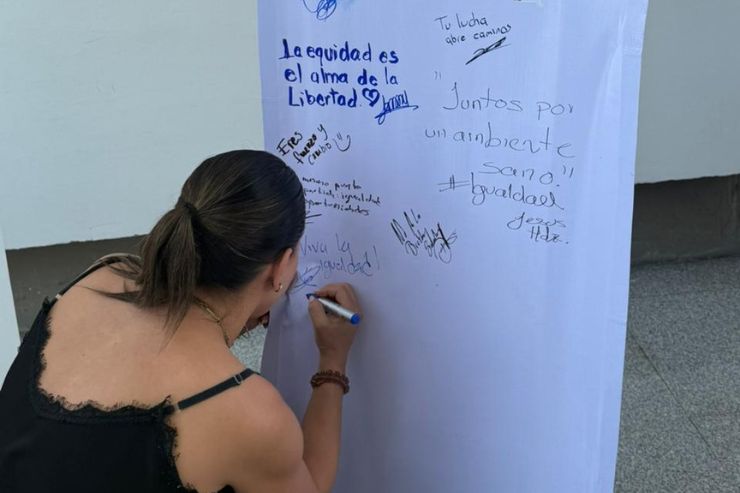 Tu lucha
abre caminos
La equidad es
el alma de la
Libertad.
"Juntos por
un ambiente
sano."
#Igualdad
Jesus
Hdz.
Eres
fuerza y
cambio
igualdad
oportunidades
Viva la
igualdad!